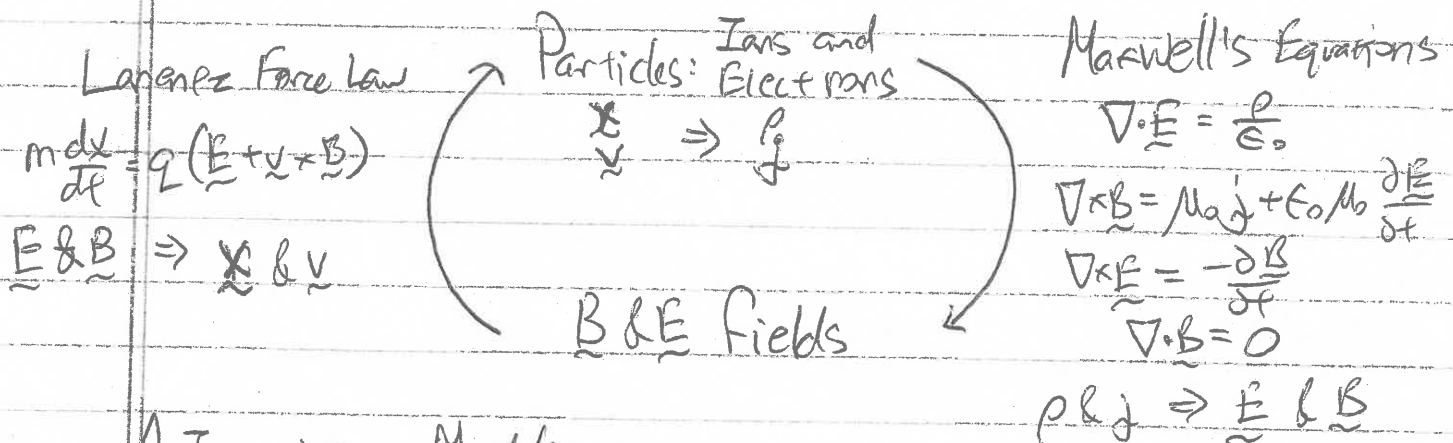 Lorenez Force Law
m dv/dt = q(E + v × B)
E & B ⇒ x & v
Particles: Ions and Electrons
x ⇒ ρ
v j
B & E fields
Maxwell's Equations
∇·E = ρ/ε₀
∇×B = μ₀j + ε₀μ₀ ∂E/∂t
∇×E = -∂B/∂t
∇·B = 0
ρ & j ⇒ E & B